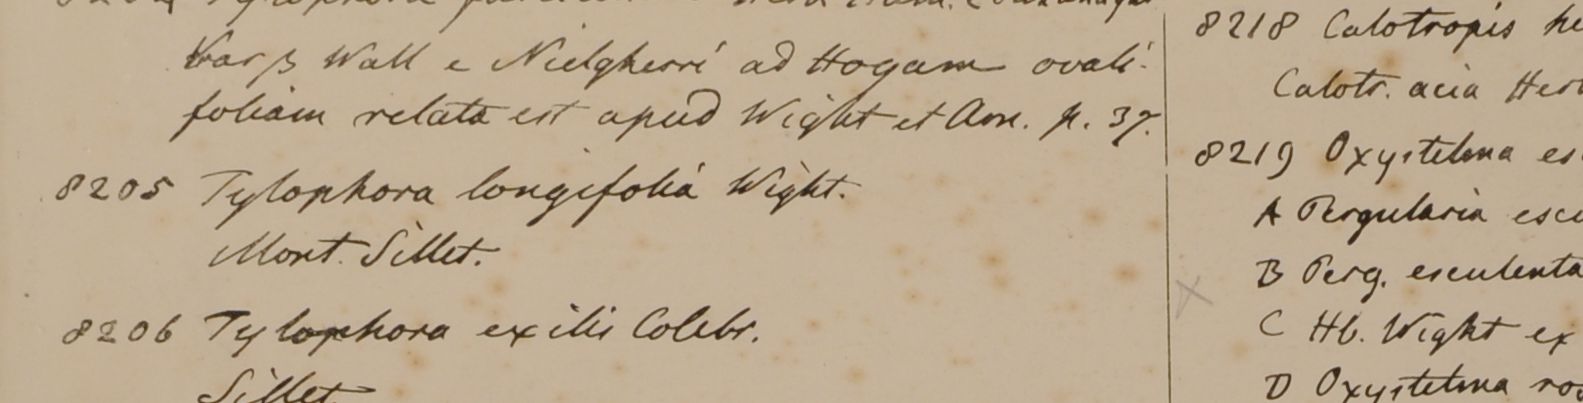 8204 Tylophora
Var β Wall e Nielgherri ad Hoyam ovali-
foliam relata est apud Wight et Arn. p. 37.
8205 Tylophora longifolia Wight.
Mont. Sillet.
8206 Tylophora exilis Colebr.
Sillet
8218 Calotropis he
Calotr. acia Herb
8219 Oxystelma es
A Pergularia escu
B Perg. esculenta
C Hb. Wight ex
D Oxystelma ros